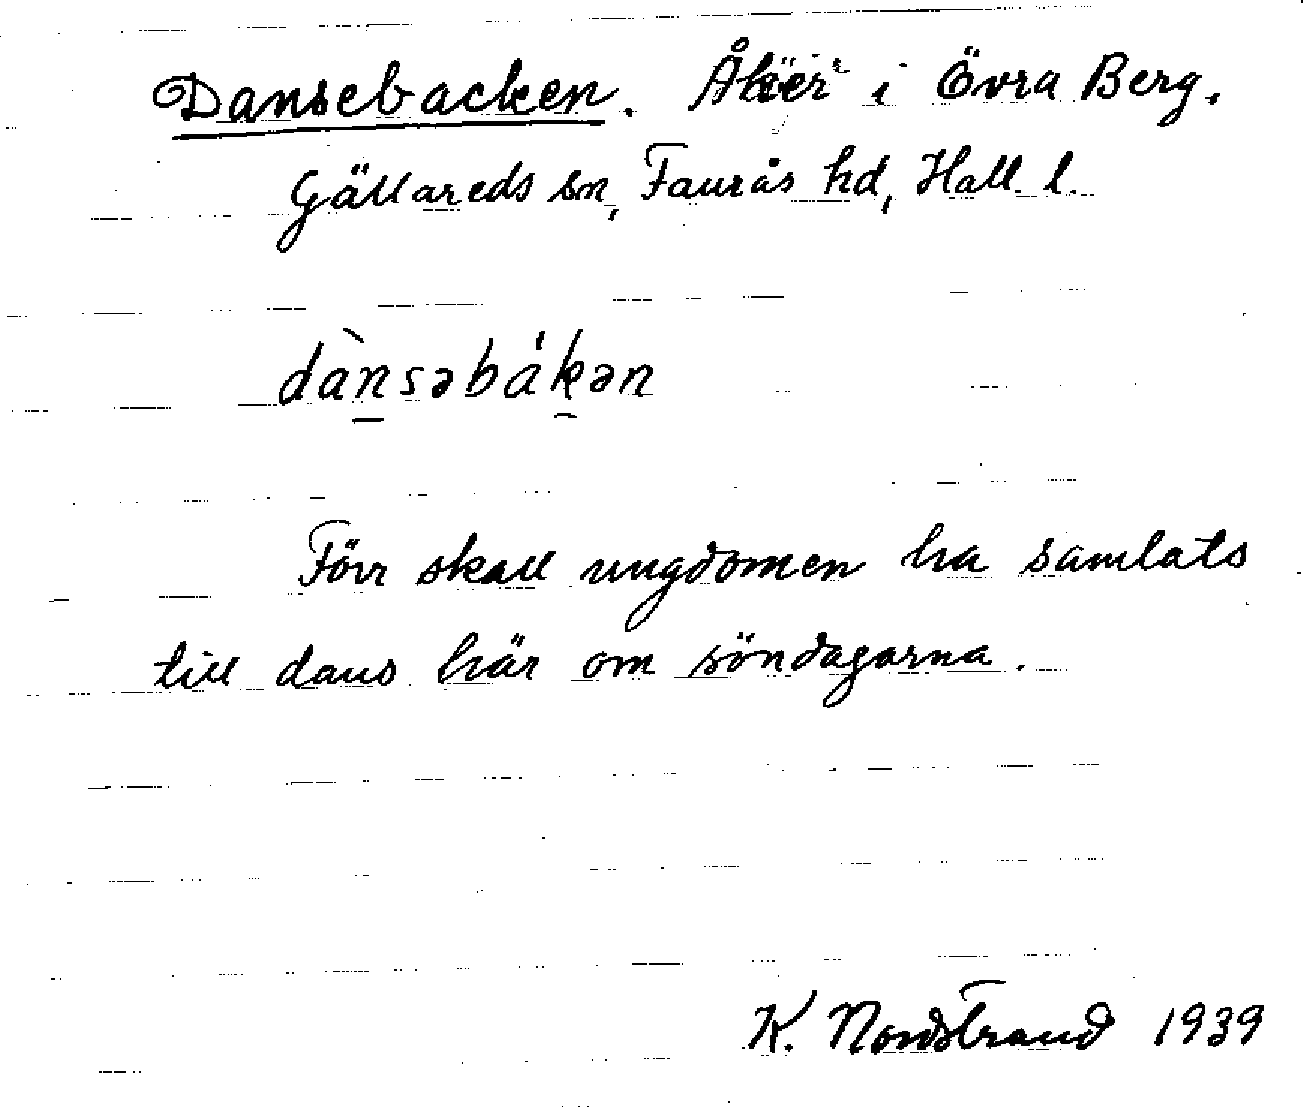 Dansebacken. Åker i Övra Berg.
Gällareds sn, Faurås hd, Hall. l.
dànsəbákən
Förr skall ungdomen ha samlats
till dans här om söndagarna.
K. Nordstrand 1939